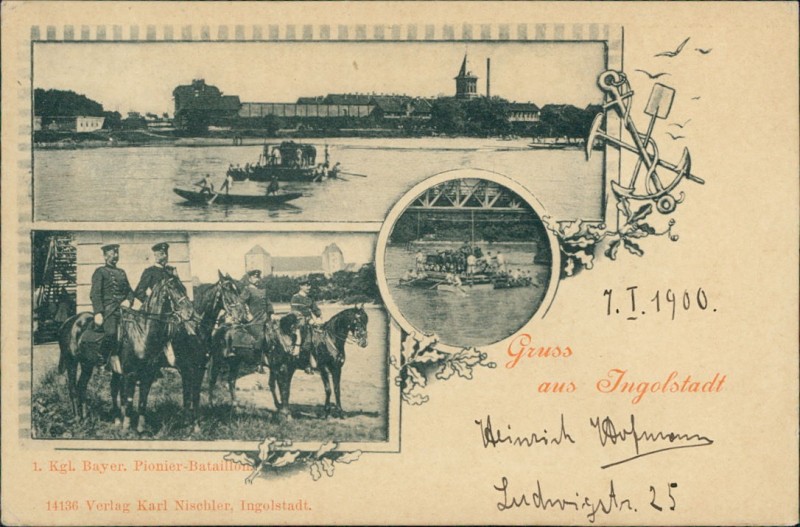 7.I.1900.
Gruss
aus Ingolstadt
Heinrich Hofmann
Ludwigstr. 25
1. Kgl. Bayer. Pionier-Bataillon
14136 Verlag Karl Nischler, Ingolstadt.